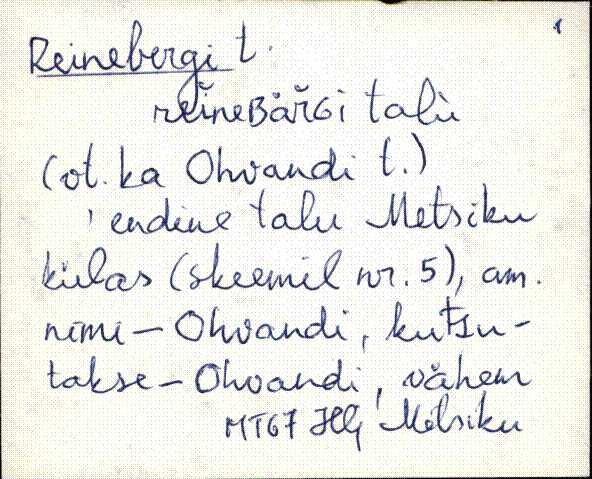 1
Reinebergi t.
reineBärGi talu
(vt. ka Ohvandi t.)
endine talu Metsiku
külas (skeemil nr. 5), am.
nimi – Ohvandi, kutsu-
takse – Ohvandi, vähem
MT67 Metsiku